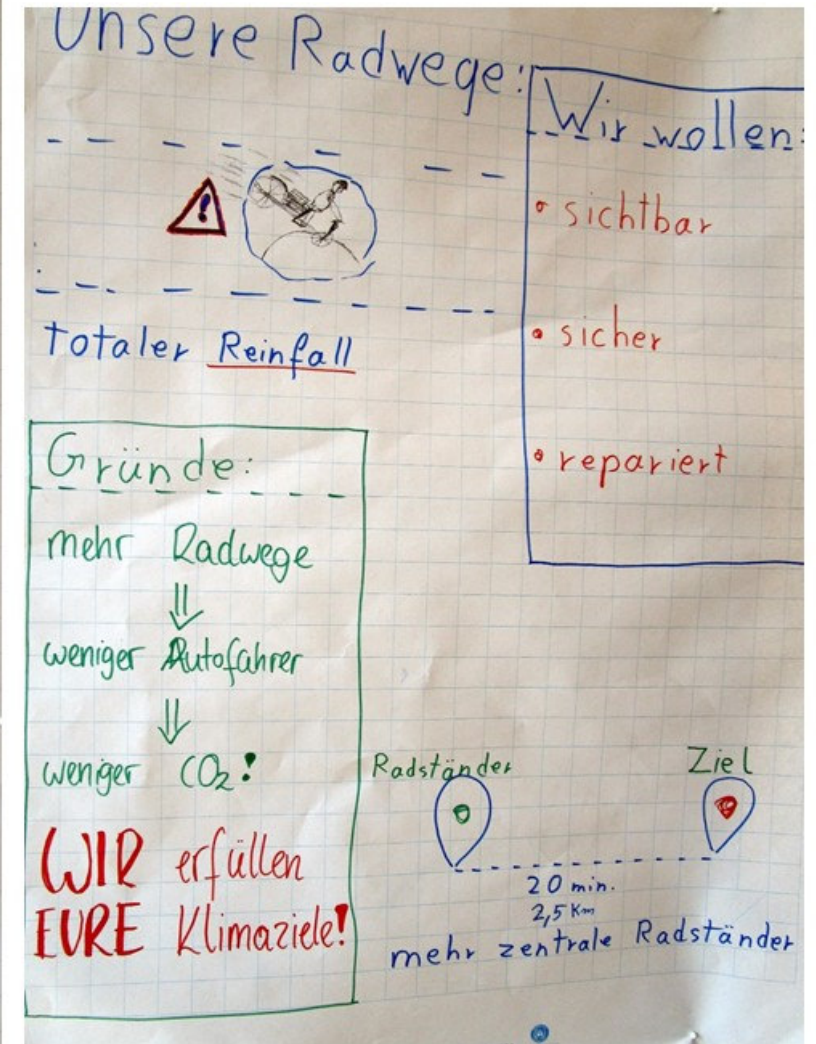 Unsere Radwege:
totaler Reinfall
Wir wollen:
• sichtbar
• sicher
• repariert
Gründe:
mehr Radwege
⇓
weniger Autofahrer
⇓
weniger CO₂!
WIR erfüllen
EURE Klimaziele!
Radständer
Ziel
20 min.
2,5 Km
mehr zentrale Radständer